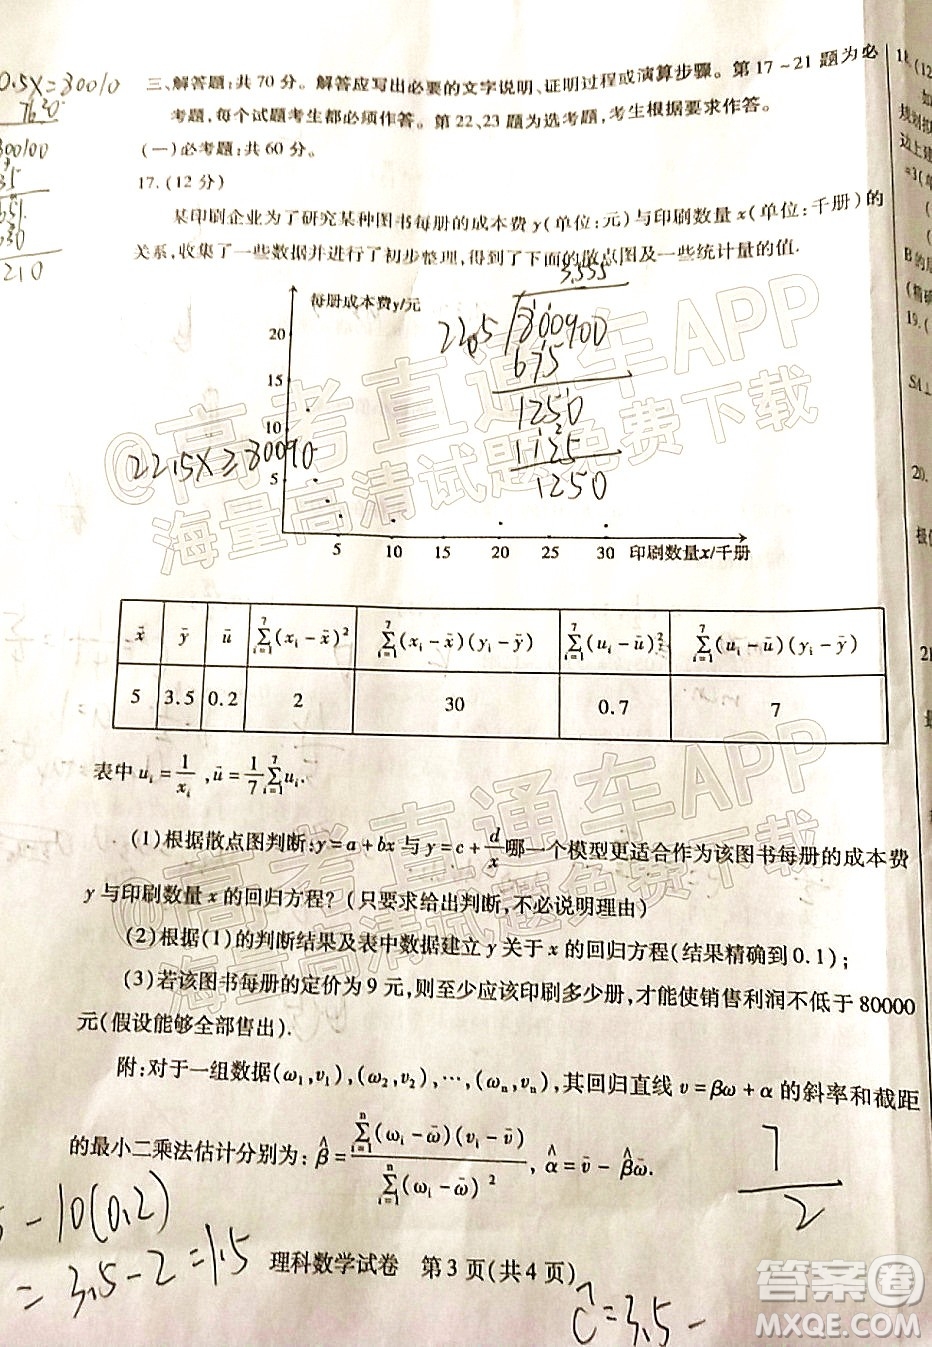 0.5x=80010
7630
三、解答题:共 70 分。解答应写出必要的文字说明、证明过程或演算步骤。第 17~21 题为必
考题,每个试题考生都必须作答。第 22、23 题为选考题,考生根据要求作答。
(一)必考题:共 60 分。
17.(12 分)
某印刷企业为了研究某种图书每册的成本费 y(单位:元)与印刷数量 x(单位:千册)的
关系,收集了一些数据并进行了初步整理,得到了下面的散点图及一些统计量的值.
3.555
每册成本费y/元
20
15
10
5
5 10 15 20 25 30 印刷数量x/千册
675
1250
1125
1250
@高考直通车APP
海量高清试题免费下载
x̄ ȳ ū ∑(i=1→7)(xᵢ-x̄)² ∑(i=1→7)(xᵢ-x̄)(yᵢ-ȳ) ∑(i=1→7)(uᵢ-ū)² ∑(i=1→7)(uᵢ-ū)(yᵢ-ȳ)
5 3.5 0.2 2 30 0.7 7
表中 uᵢ=1/xᵢ ,ū=1/7 ∑(i=1→7)uᵢ.
@高考直通车APP
海量高清试题免费下载
(1)根据散点图判断:y=a+bx 与 y=c+d/x 哪一个模型更适合作为该图书每册的成本费
y 与印刷数量 x 的回归方程?(只要求给出判断,不必说明理由)
(2)根据(1)的判断结果及表中数据建立 y 关于 x 的回归方程(结果精确到 0.1);
(3)若该图书每册的定价为 9 元,则至少应该印刷多少册,才能使销售利润不低于 80000
元(假设能够全部售出).
附:对于一组数据(ω₁,v₁),(ω₂,v₂),…,(ωₙ,vₙ),其回归直线 v=βω+α 的斜率和截距
的最小二乘法估计分别为:β̂=∑(i=1→n)(ωᵢ-ω̄)(vᵢ-v̄)/∑(i=1→n)(ωᵢ-ω̄)², α̂=v̄-β̂ω̄.
7/2
-10(0.2)
=3.5-2=1.5
理科数学试卷 第 3 页(共 4 页)
ĉ=3.5-
18.(12
规划拟
边上建
=3(单
(精确
19.(
SA⊥
20.
21
答案圈
MXQE.COM